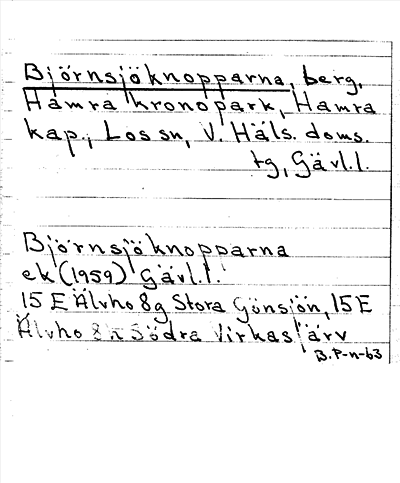 Björnsjöknopparna, berg,
Hamra kronopark, Hamra
kap., Los sn, V. Häls. doms.
tg, Gävl.l.
Björnsjöknopparna
ek (1959) Gävl.l.
15 E Älvho 8g Stora Gönsjön, 15 E
Älvho 8h Södra Virkasjärv
B.P-n-63